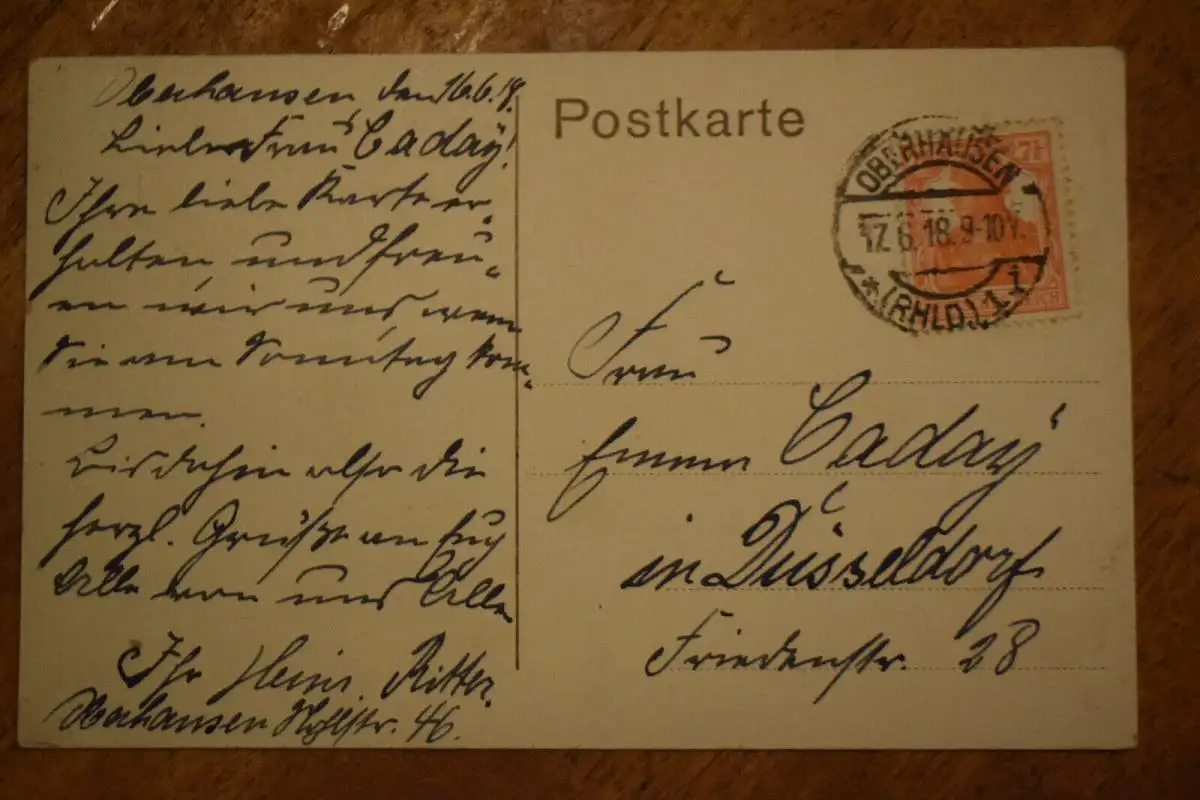 Oberhausen den 16.6.18.
Liebe Frau Caday!
Ihre liebe Karte er-
halten und freu-
en wir uns wenn
Sie am Sonntag kom-
men.
Bis dahin also die
herzl. Grüße an Euch
Alle von uns Allen
Ihr Heinr. Ritter.
Oberhausen str. 46.
Postkarte
OBERHAUSEN
17.6.18.9-10V.
* (RHLD.) 1
7½
Frau
Emma Caday
in Düsseldorf
Friedenstr. 28